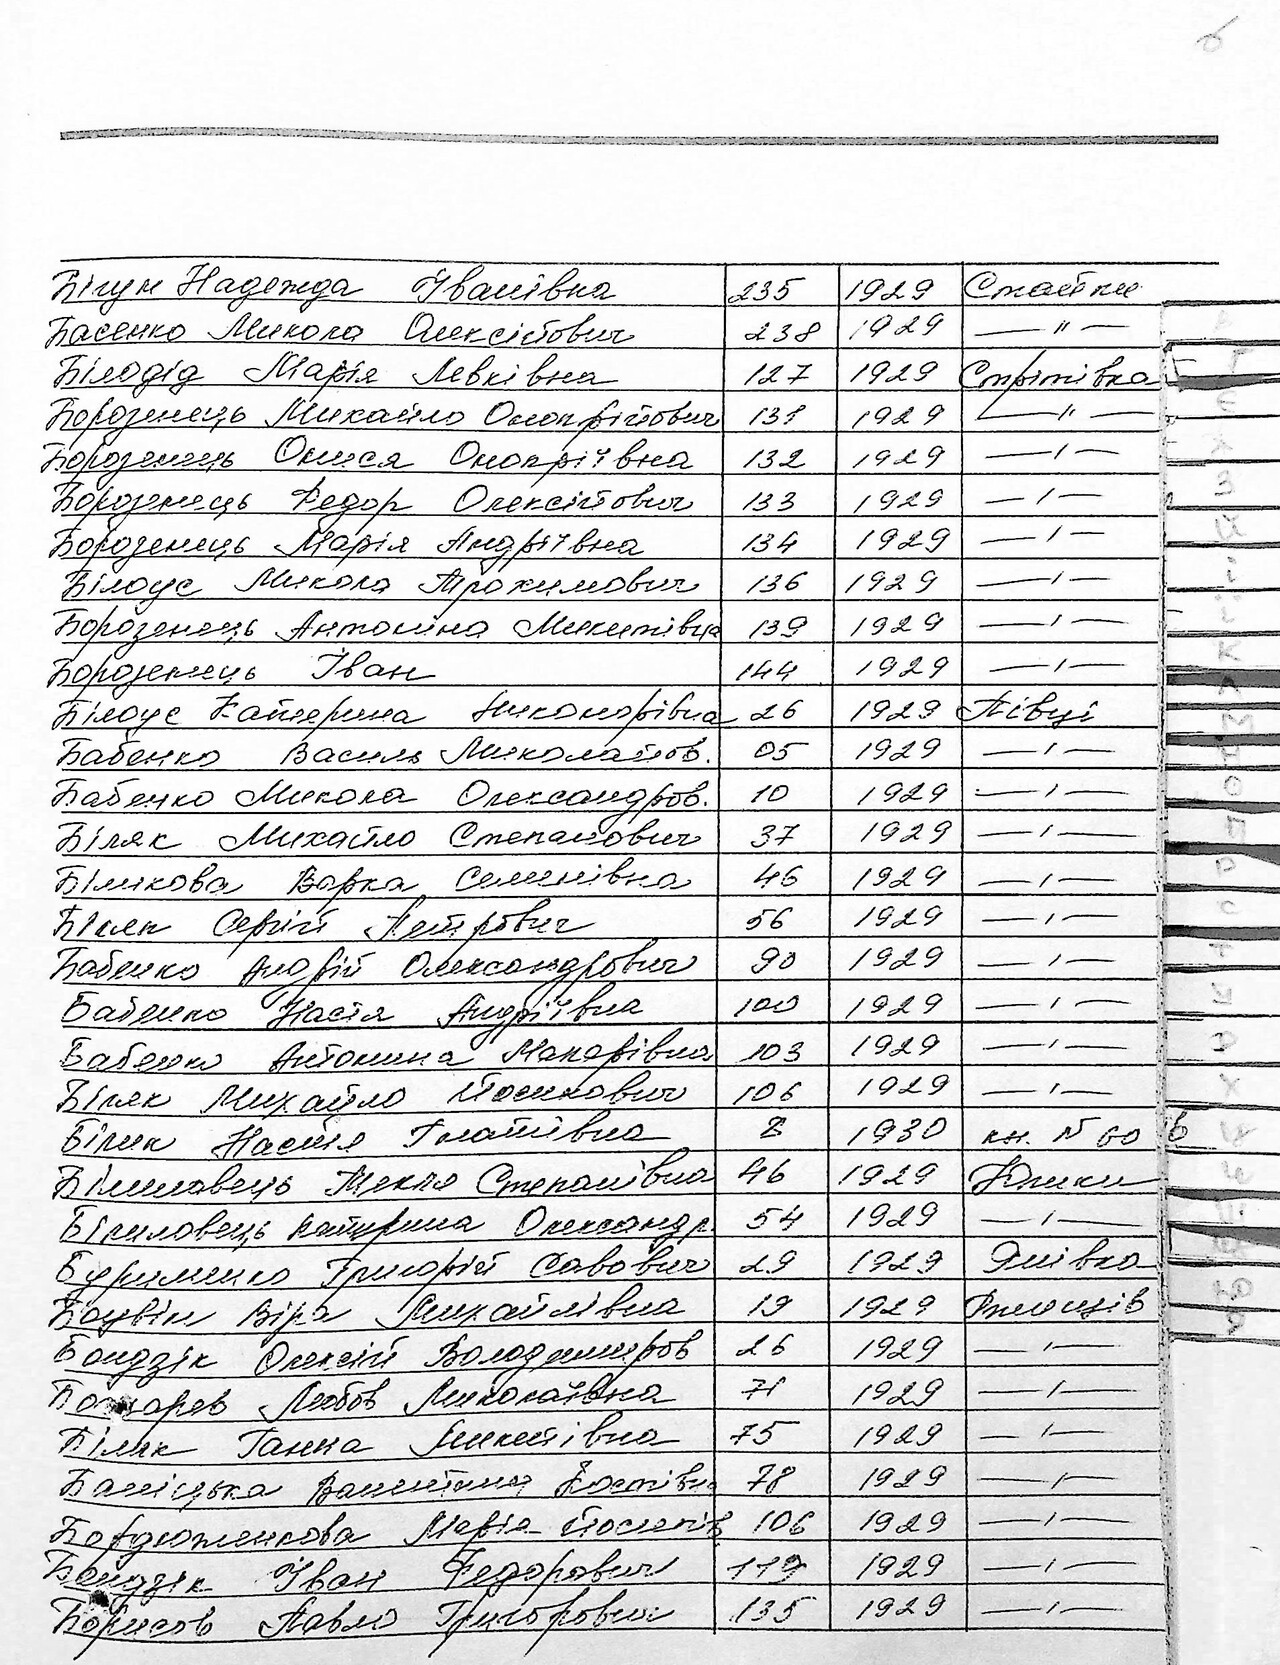 6
Бігун Надежда Іванівна 235 1929 Стайки
Басенко Микола Олексійович 238 1929 — " —
Білодід Марія Левківна 127 1929 Стрітівка
Борозенець Михайло Онопрійович 131 1929 — " —
Борозенець Онися Онопріївна 132 1929 — " —
Борозенець Федор Олексійович 133 1929 — " —
Борозенець Марія Андріївна 134 1929 — " —
Білоус Микола Трохимович 136 1929 — " —
Борозенець Антоніна Микитівна 139 1929 — " —
Борозенець Іван 144 1929 — " —
Білоус Катерина Никонорівна 26 1929 Півці
Бабенко Василь Миколайов. 05 1929 — " —
Бабенко Микола Олександров. 10 1929 — " —
Біляк Михайло Степанович 37 1929 — " —
Білікова Варка Семенівна 46 1929 — " —
Біляк Сергій Петрович 56 1929 — " —
Бабенко Андрій Олександрович 90 1929 — " —
Бабенко Настя Андріївна 100 1929 — " —
Бабенко Антонина Макарівна 103 1929 — " —
Біляк Михайло Йосипович 106 1929 — " —
Білик Настя Гнатівна 8 1930 кн. № 60
Білиловець Текля Степанівна 46 1929 Юшки
Білиловець Катерина Олександр. 54 1929 — " —
Бурименко Григорій Савович 29 1929 Янівка
Віра Михайлівна 19 1929 Ржищів
Бондзік Олексій Володимиров 26 1929 — " —
Любов Миколаївна 71 1929 — " —
Біляк Ганна Микитівна 75 1929 — " —
Валентина Костівна 78 1929 — " —
Бордюженкова Марія Йосипів 106 1929 — " —
Бондзік Іван Федорович 119 1929 — " —
Борисов Павло Григорович 135 1929 — " —